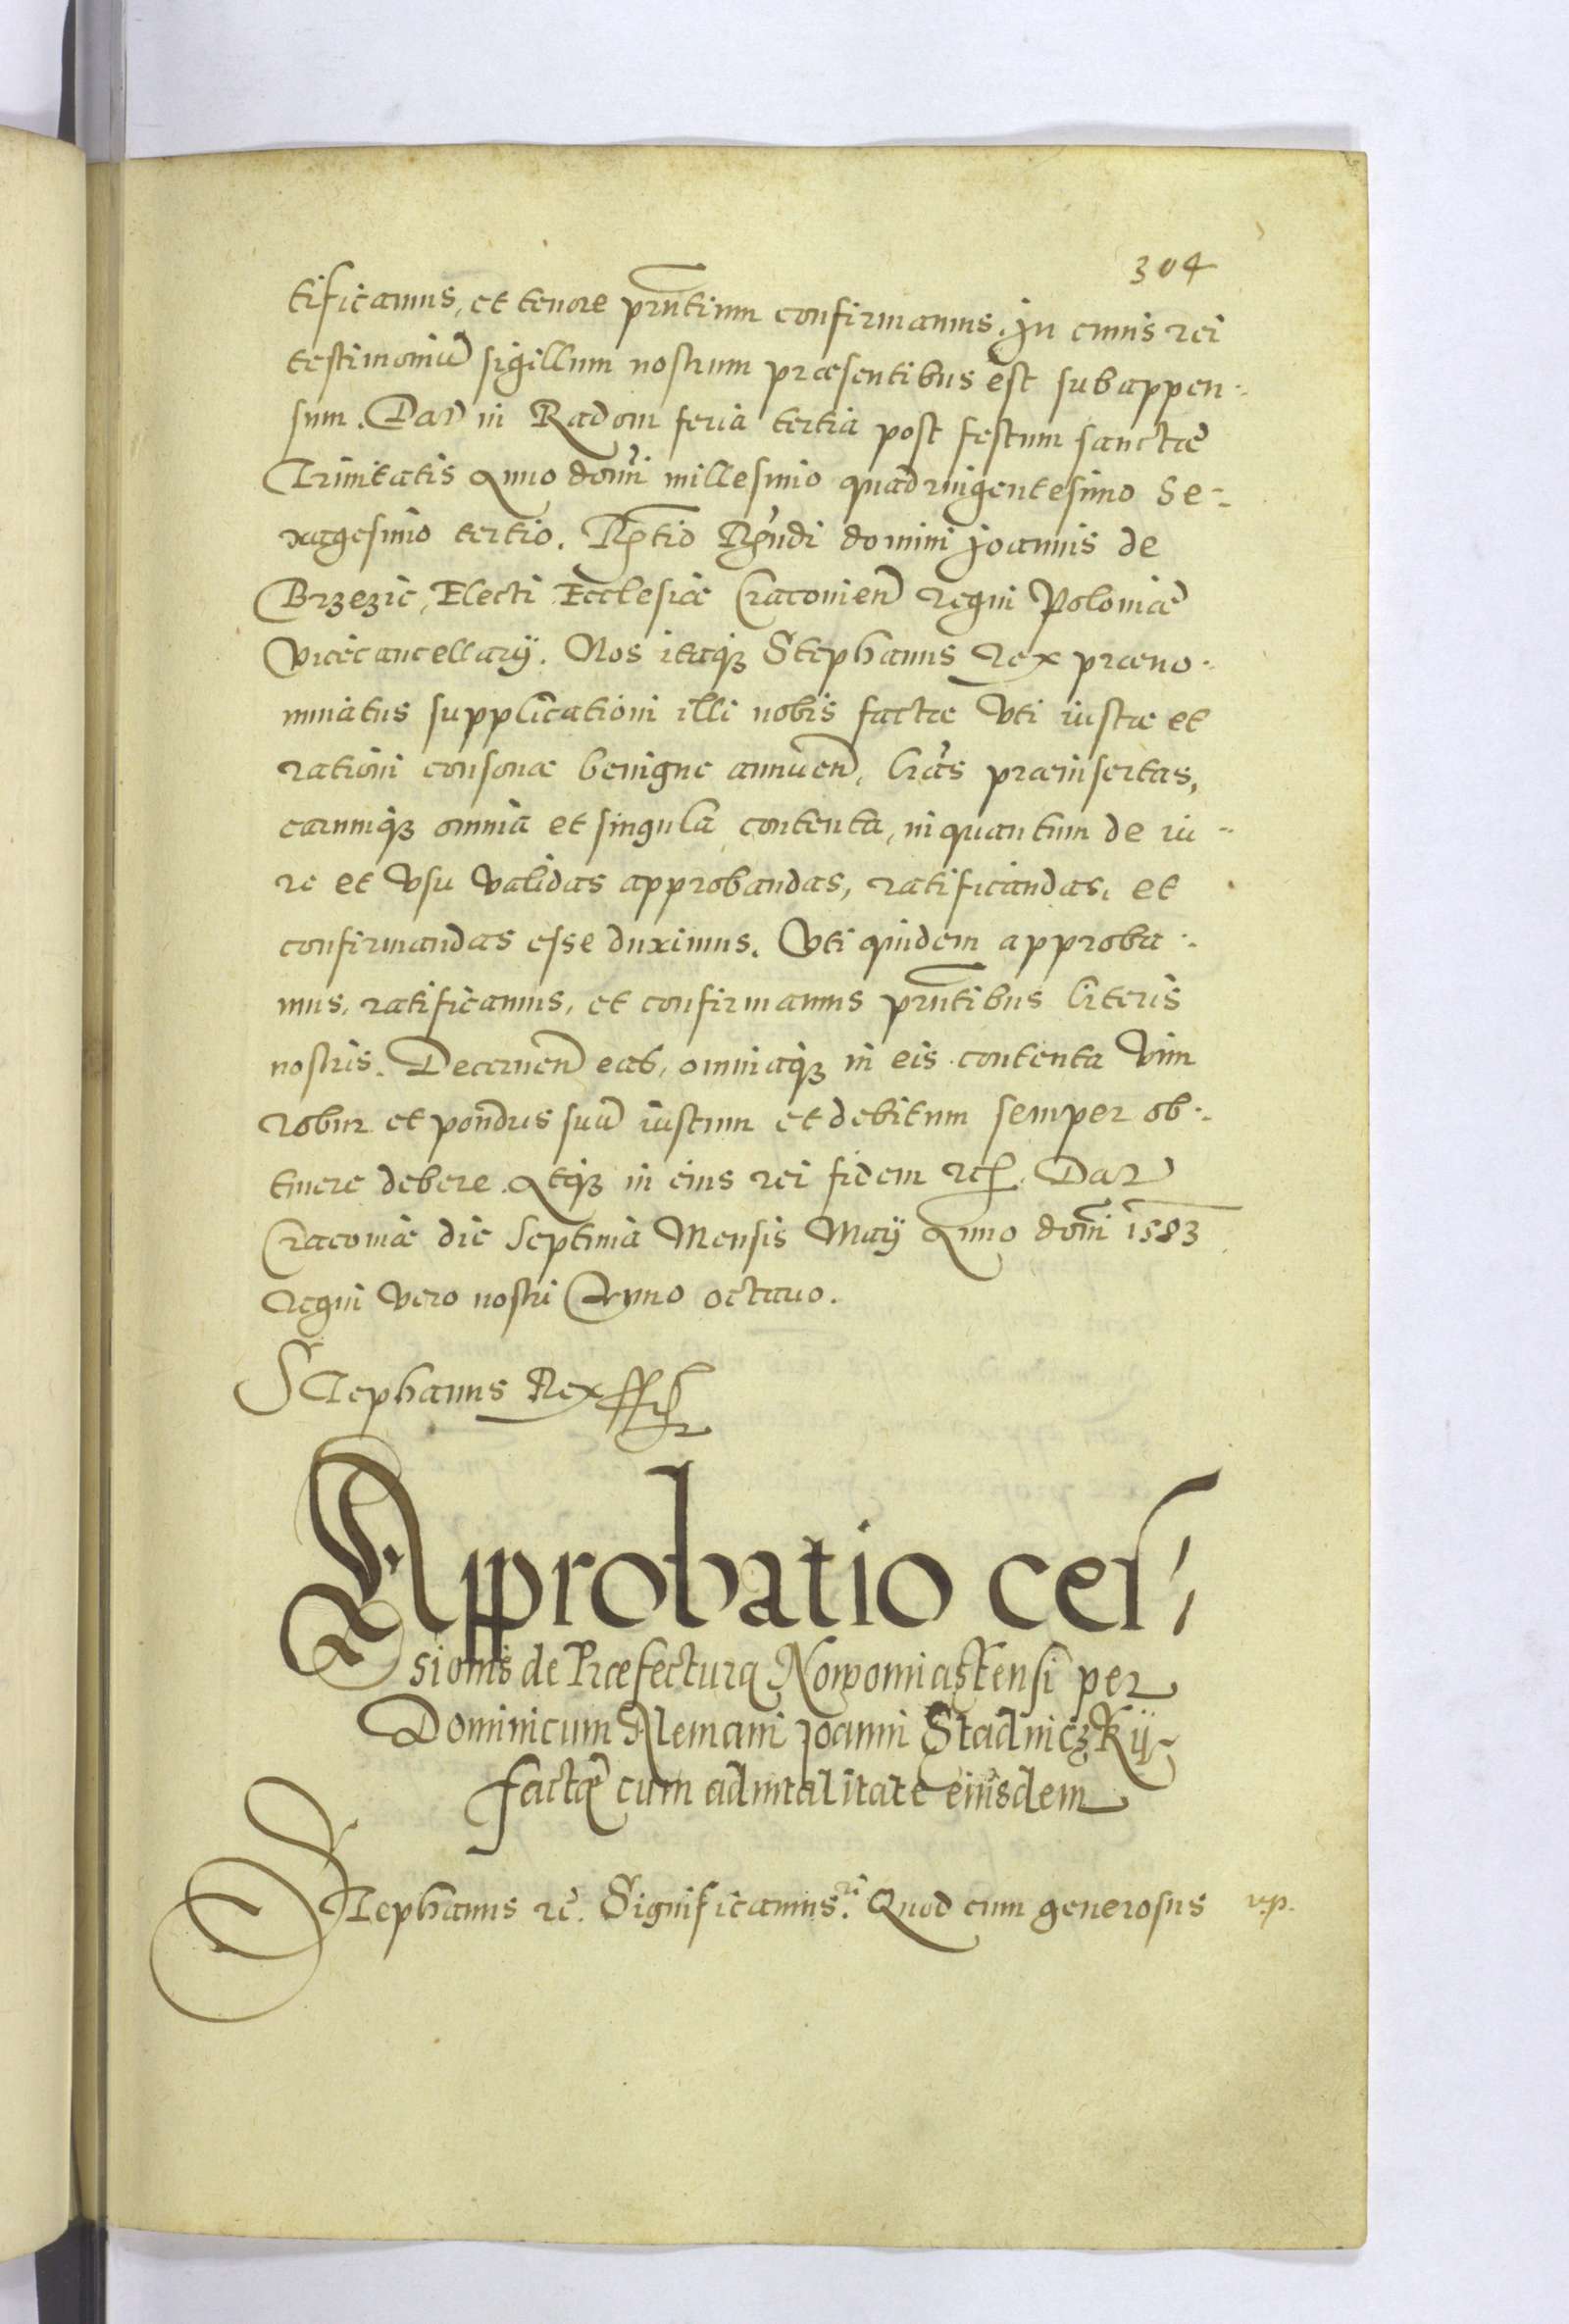 304
tificamus, et tenore prntium confirmamus. In cuius rei
testimoniū sigillum nostrum præsentibus est subappen-
sum. Dat in Radom feria tertia post festum sanctæ
Trinitatis Anno domi millesimo quadringentesimo Se-
xagesimo tertio. Rtio Rndi domini Joannis de
Brzezie, Electi Ecclesiæ Cracovien regni Poloniæ
Vicecancellarÿ. Nos itaqȝ Stephanus Rex præno-
minatus supplicationi illi nobis factæ Vti iustæ et
rationi consonæ benigne annuen, lras præinsertas,
earumqȝ omnia et singula contenta, inquantum de iu-
re et Vsu Validas approbandas, ratificandas, et
confirmandas esse duximus. Vti quidem approba-
mus, ratificamus, et confirmamus prntibus literis
nostris. Decernen eas, omniaqȝ in eis contenta Vim
robur et pondus suū iustum et debitum semper ob-
tinere debere. Atqȝ in eius rei fidem rei. Dat
Cracoviæ die Septima Mensis Maÿ Anno domi 1583
regni Vero nostri Anno octauo.
Stephanus Rex
Approbatio ces-
sionis de Præfectura Nowomiastensi per
Dominicum Alemani Joanni Stadniczkÿ
factæ cum aduitalitate eiusdem
Stephanus rc. Significamus. rc Quod cum generosus v.p.